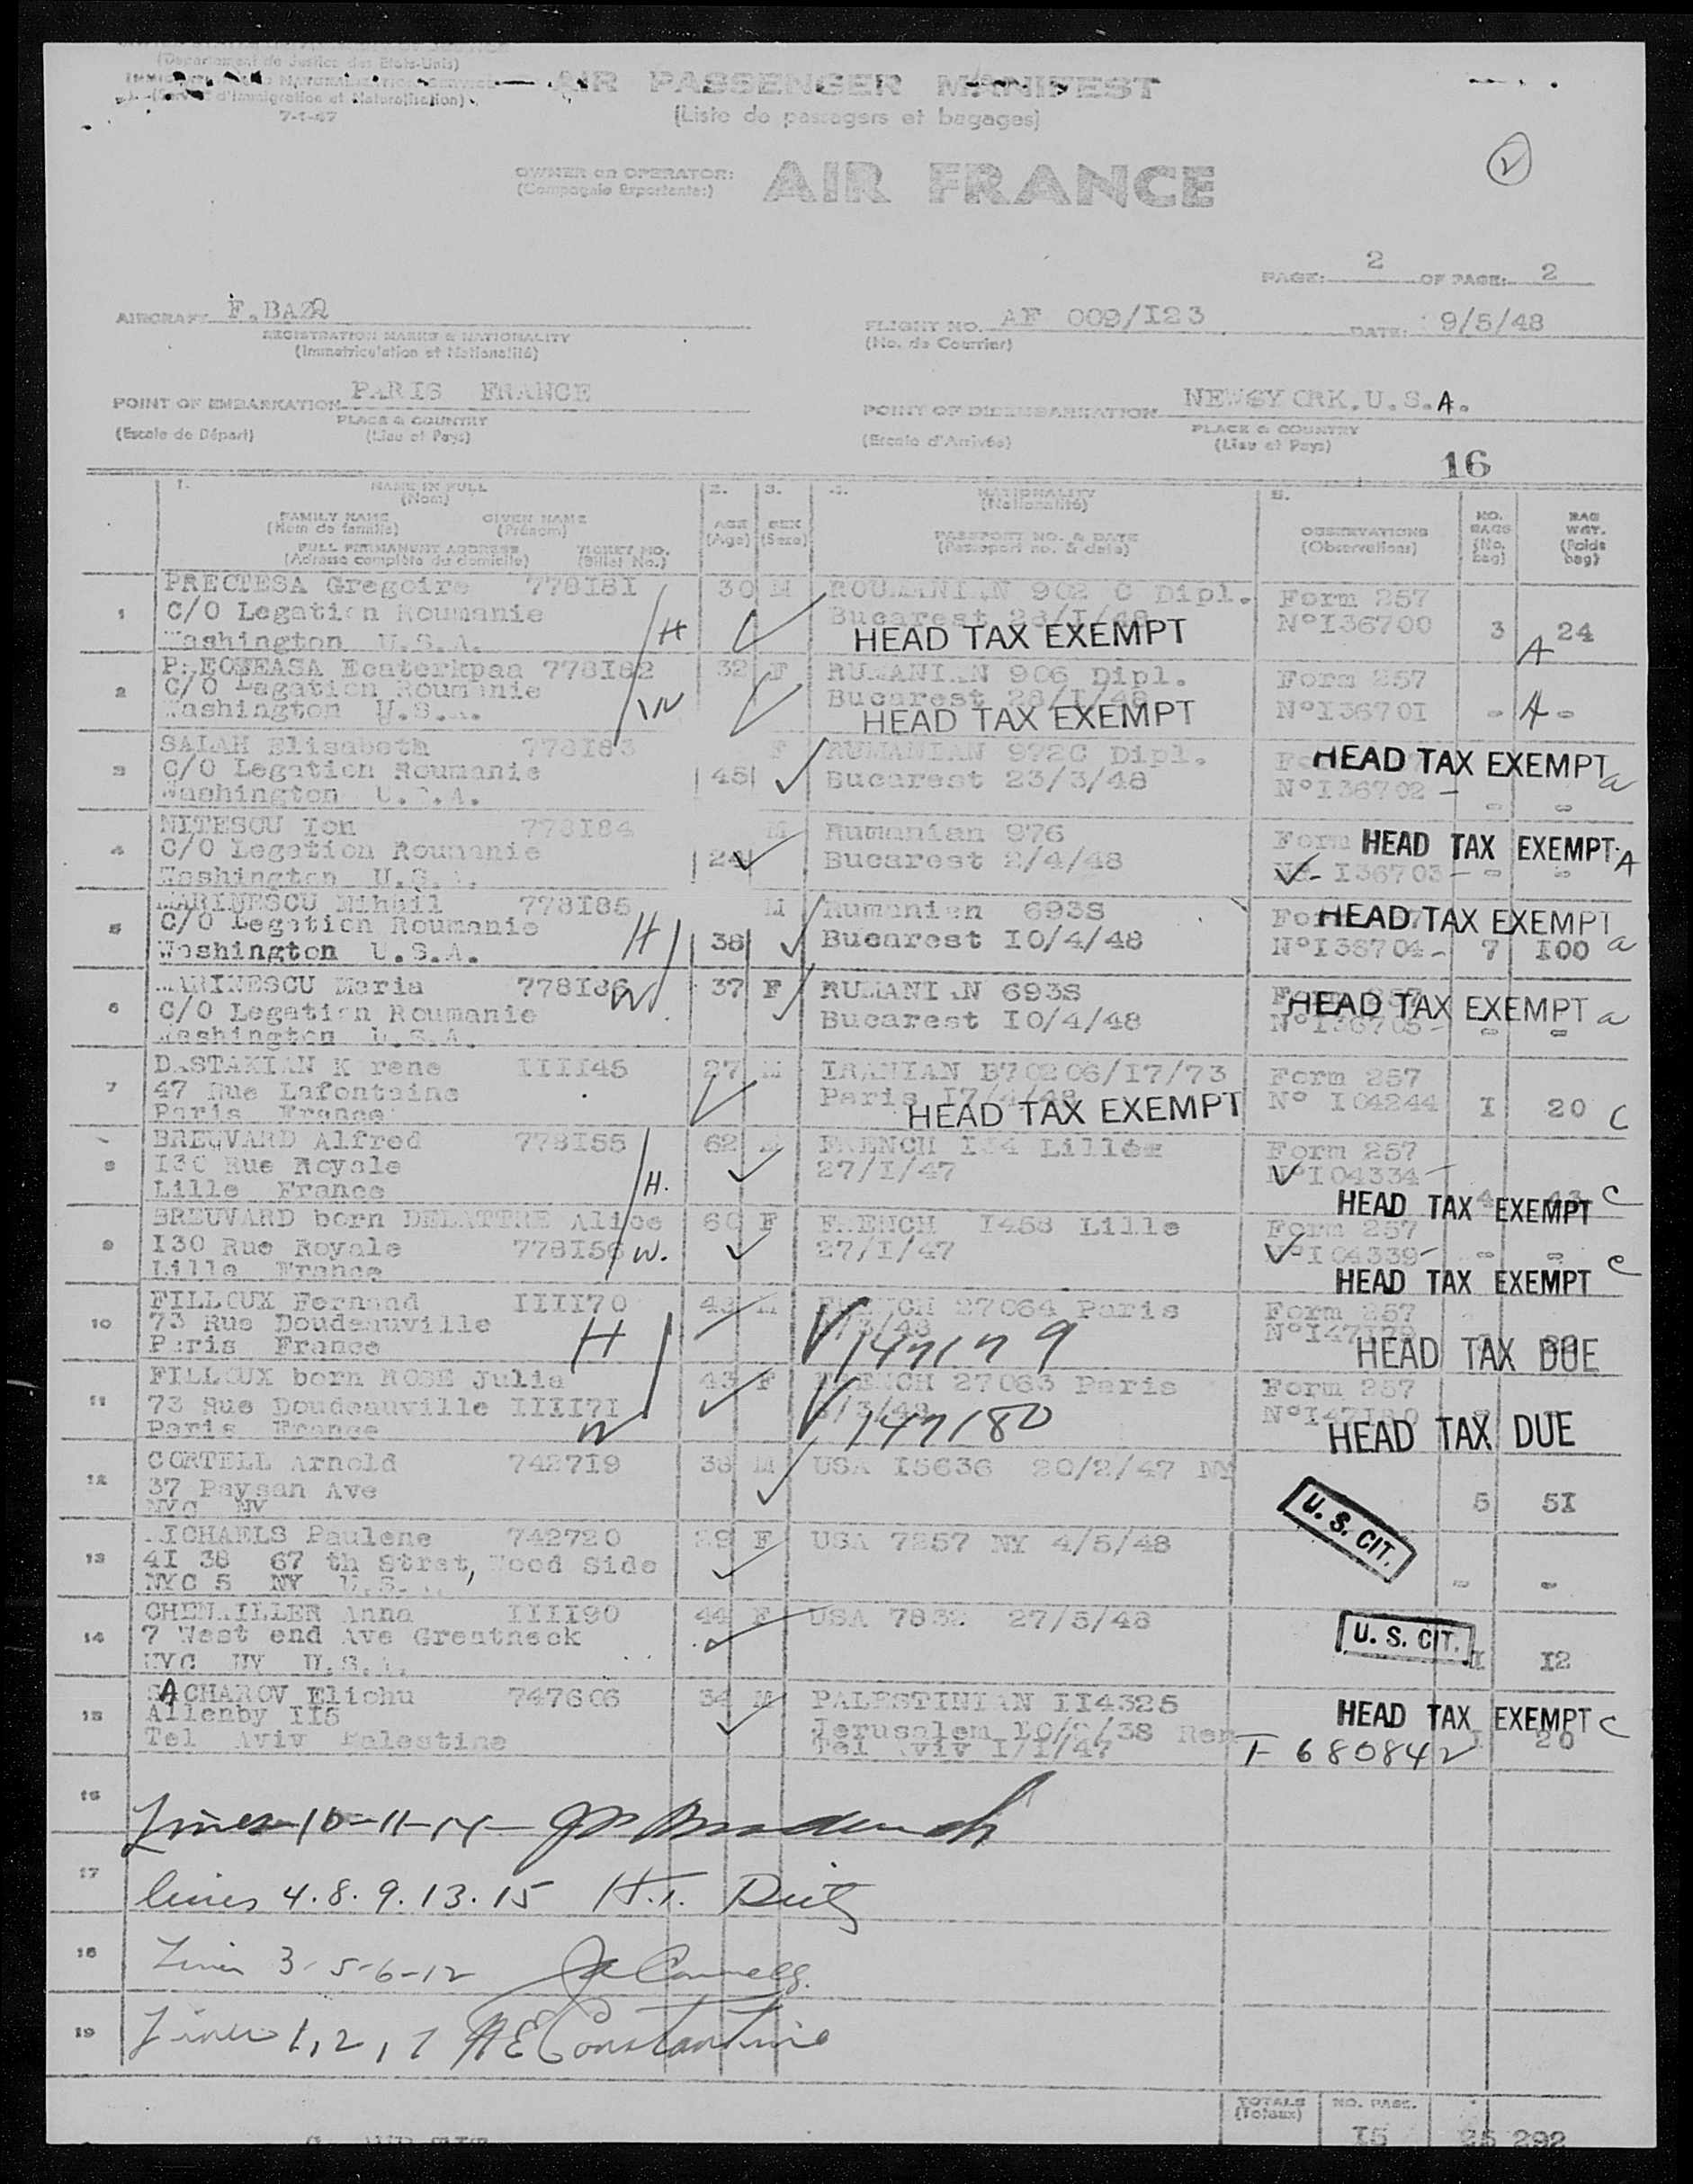 (Departement de Justice des Etats-Unis)
AIR PASSENGER MANIFEST
(Service d'Immigration et Naturalisation)
7-1-47
(Liste de passagers et bagages)
OWNER OR OPERATOR: AIR FRANCE
(Compagnie Exportante:)
2
PAGE: 2 OF PAGE: 2
AIRCRAFT F.BAZQ
REGISTRATION MARKS & NATIONALITY
(Immatriculation et Nationalité)
FLIGHT NO. AF 009/I23 DATE: 9/5/48
(No. de Courrier)
POINT OF EMBARKATION PARIS FRANCE
PLACE & COUNTRY
(Escale de Départ) (Lieu et Pays)
POINT OF DISEMBARKATION NEW YORK.U.S.A.
PLACE & COUNTRY
(Escale d'Arrivée) (Lieu et Pays)
16
1. NAME IN FULL 2. 3. 4. NATIONALITY 5.
(Nom) (Nationalité)
FAMILY NAME GIVEN NAME AGE SEX PASSPORT NO. & DATE OBSERVATIONS NO. BAGS BAG WGT.
(Nom de famille) (Prénom) (Age) (Sexe) (Passeport no. & date) (Observations) (No. bag) (Poids bag)
FULL PERMANENT ADDRESS TICKET NO.
(Adresse complète du domicile) (Billet No.)
1 PRECTESA Gregoire 778I8I 30 M ROUMANIAN 902 C Dipl. Form 257
C/O Legation Roumanie H Bucarest 28/I/48 N°I36700 3 24
Washington U.S.A. HEAD TAX EXEMPT A
2 778I82 32 F RUMANIAN 906 Dipl. Form 257
C/O Lagation Roumanie Bucarest 28/I/48
Washington U.S.A. W HEAD TAX EXEMPT N°I3670I - A -
3 SALAH Elisabeth 778I83 F RUMANIAN 972C Dipl. HEAD TAX EXEMPT a
C/O Legation Roumanie 45 Bucarest 23/3/48 N°I36702 - - -
Washington U.S.A.
4 NITESCU Ion 778I84 M Rumanian 976 Form HEAD TAX EXEMPT A
C/O Legation Roumanie 24 Bucarest 2/4/48 I36703 - - -
Washington U.S.A.
5 MARINESCU Mihail 778I85 M Rumanien 693S HEAD TAX EXEMPT a
C/O Legation Roumanie H 38 Bucarest I0/4/48 N°I36704 - 7 I00
Washington U.S.A.
6 MARINESCU Maria 778I86 W. 37 F RUMANIAN 693S HEAD TAX EXEMPT a
C/O Legation Roumanie Bucarest I0/4/48 N°I36705 - - -
Washington U.S.A.
7 DASTAKIAN Karene IIII45 27 M IRANIAN B70206/I7/73 Form 257
47 Rue Lafontaine Paris I7/4/48 N° I04244 I 20 C
Paris France HEAD TAX EXEMPT
8 BREUVARD Alfred 778I55 62 M FRENCH Lille Form 257
I30 Rue Royale 27/I/47 N°I04334 -
Lille France H. HEAD TAX EXEMPT C
9 BREUVARD born DELATTRE Alice 60 F FRENCH I458 Lille Form 257
I30 Rue Royale 778I56 W. 27/I/47 N°I04339 - - -
Lille France HEAD TAX EXEMPT C
10 FILLOUX Fernand IIII70 M FRENCH 27064 Paris Form 257
73 Rue Doudeauville /3/48
Paris France H 147179 HEAD TAX DUE
11 FILLOUX born ROSE Julia 43 F FRENCH 27063 Paris Form 257
73 Rue Doudeauville IIII7I /3/48 N°I47I80
Paris France W 147180 HEAD TAX DUE
12 CORTELL Arnold 7427I9 38 M USA I5636 20/2/47 NY
37 Paysan Ave U. S. CIT. 5 5I
NYC NY
13 MICHAELS Paulene 742720 29 F USA 7257 NY 4/5/48
4I 38 67 th Stret, Wood Side
NYC 5 NY U.S.A. - -
14 CHENMILLER Anna IIII90 44 F USA 7832 27/5/48
7 West end Ave Greatneck U. S. CIT.
NYC NY U.S.A. I I2
15 SACHAROV Eliohu 747606 34 M PALESTINIAN II4325 HEAD TAX EXEMPT C
Allenby II5 Jerusalem I0/2/38 Ren I 20
Tel Aviv Palestine Tel Aviv I/I/47 T-680842
16 Lines 10-11-14-
17 lines 4.8.9.13.15 H.T.
18 Lines 3-5-6-12
19 Lines 1, 2, 7 Constantine
TOTALS NO. PASS.
(Totaux) I5 25 292